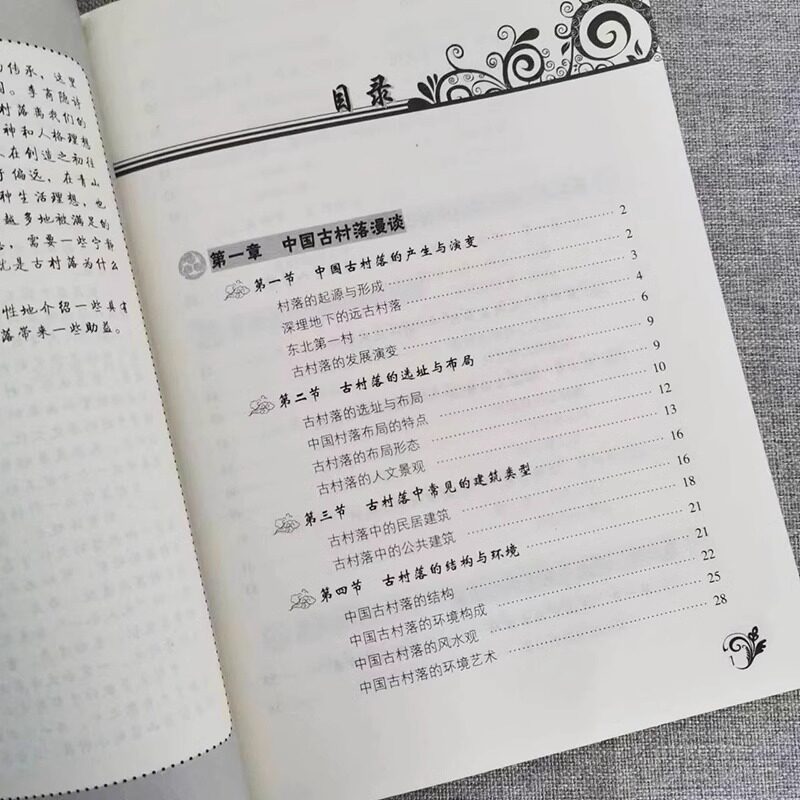 传承，这里
李商隐诗
村落离我们的
神和人格理想
在创造之初往
偏远，在青山
种生活理想，也
越多地被满足的
需要一些宁静
就是古村落为什么
性地介绍一些具有
落带来一些助益。
目录
第一章 中国古村落漫谈
第一节 中国古村落的产生与演变 2
村落的起源与形成 2
深埋地下的远古村落 3
东北第一村 4
古村落的发展演变 6
第二节 古村落的选址与布局 9
古村落的选址与布局 9
中国村落布局的特点 10
古村落的布局形态 12
古村落的人文景观 13
第三节 古村落中常见的建筑类型 16
古村落中的民居建筑 16
古村落中的公共建筑 18
第四节 古村落的结构与环境 21
中国古村落的结构 21
中国古村落的环境构成 22
中国古村落的风水观 25
中国古村落的环境艺术 28
1